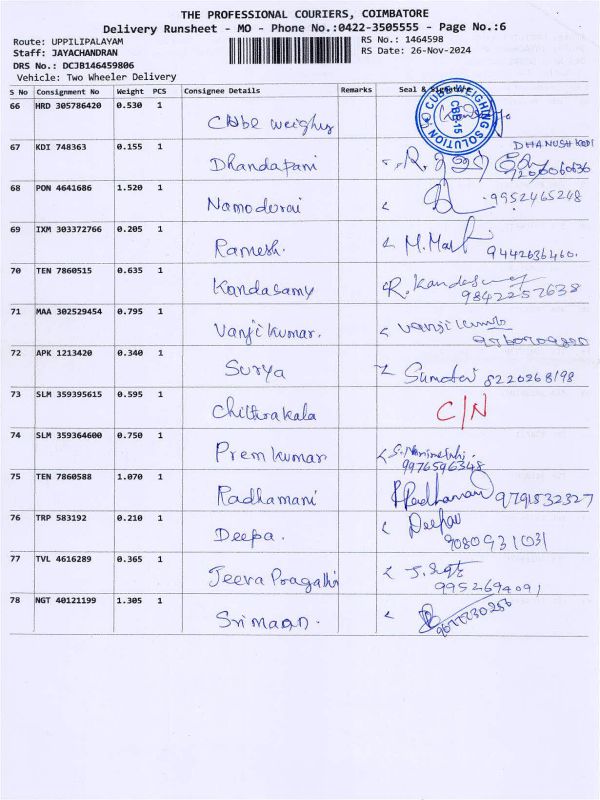 THE PROFESSIONAL COURIERS, COIMBATORE
Delivery Runsheet - MO - Phone No.:0422-3505555 - Page No.:6
Route: UPPILIPALAYAM RS No.: 1464598
Staff: JAYACHANDRAN RS Date: 26-Nov-2024
DRS No.: DCJB146459806
Vehicle: Two Wheeler Delivery
S No Consignment No Weight PCS Consignee Details Remarks Seal & Signature
66 HRD 305786420 0.530 1
CUBE WEIGHING SOLUTION CBE-15
67 KDI 748363 0.155 1 Dhandapani DHANUSH KODI
68 PON 4641686 1.520 1 Namodurai 9952465248
69 IXM 303372766 0.205 1 Ramesh. 9442636460.
70 TEN 7860515 0.635 1 Kandasamy R. Kandasamy
9842257638
71 MAA 302529454 0.795 1 Vanjikumar.
72 APK 1213420 0.340 1 Surya 8220268198
73 SLM 359395615 0.595 1 Chithrakala C/N
74 SLM 359364600 0.750 1 Premkumar
9976596348
75 TEN 7860588 1.070 1 Radhamani 9791532327
76 TRP 583192 0.210 1 Deepa.
9080931031
77 TVL 4616289 0.365 1 Jeeva Pragathi
9952694091
78 NGT 40121199 1.305 1